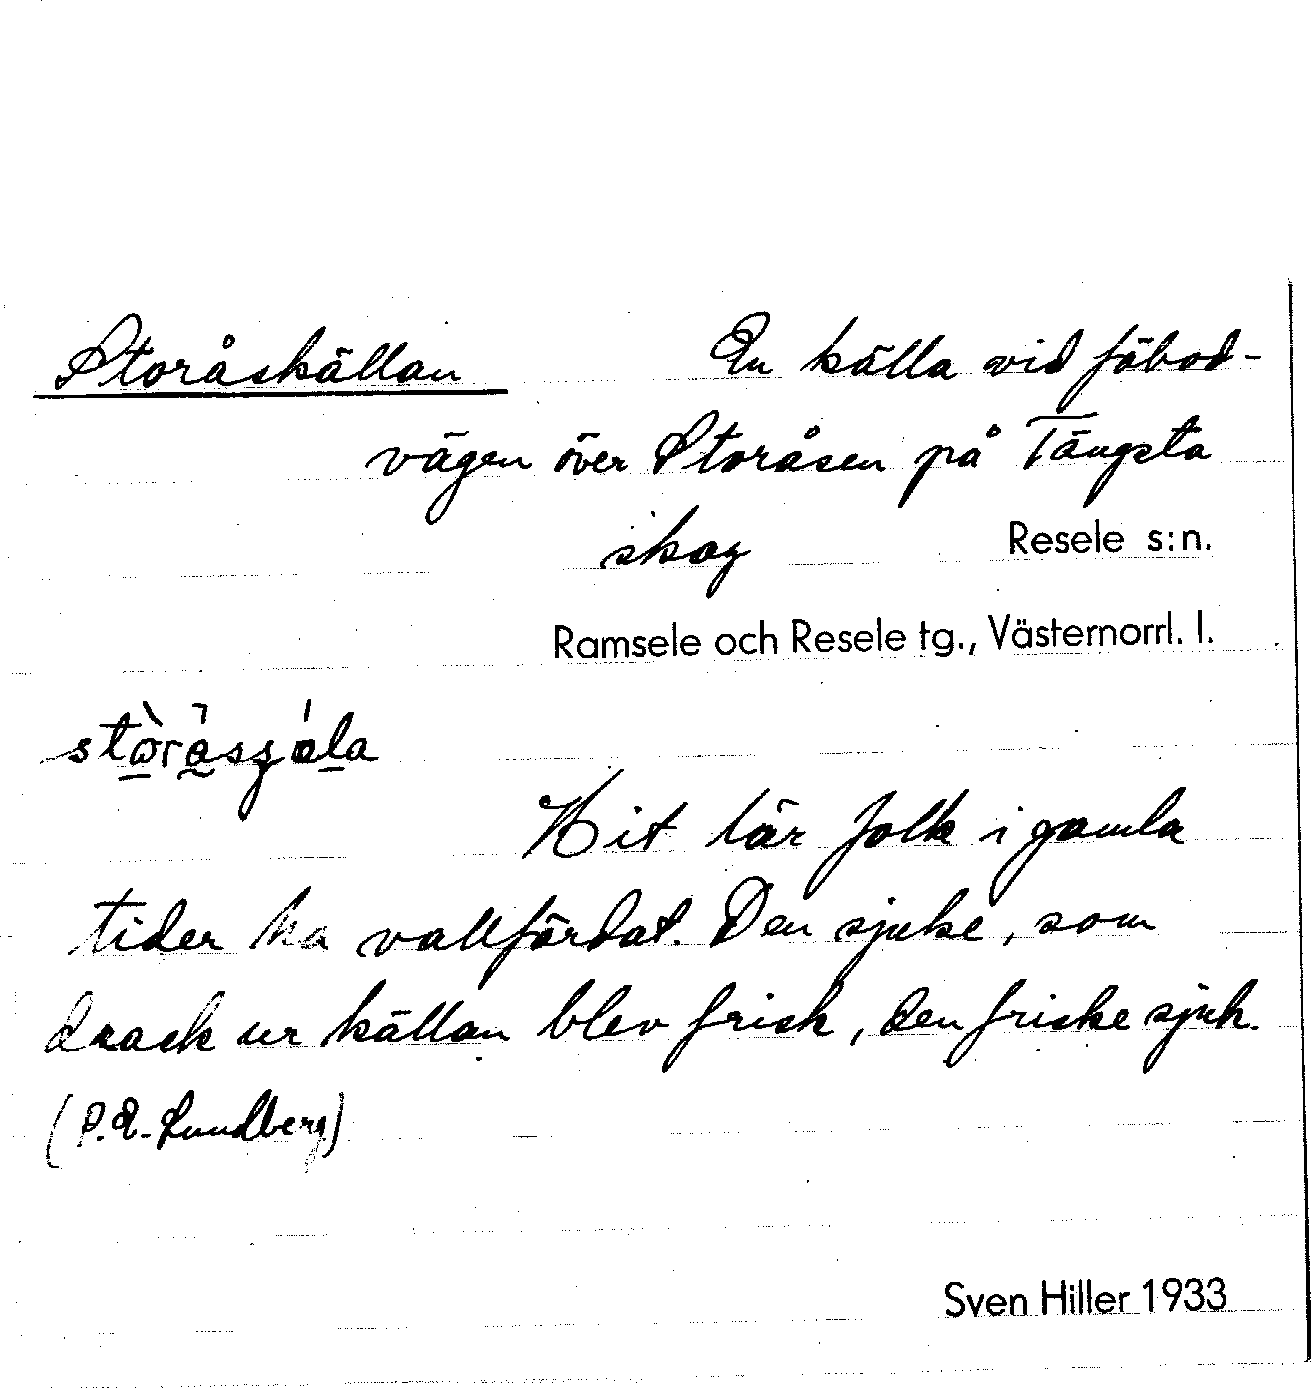 Storåskällan En källa vid fäbod-
vägen över Storåsen på Tängsta
skog Resele s:n.
Ramsele och Resele tg., Västernorrl. l.
Hit lär folk i gamla
tider ha vallfärdat. Den sjuke, som
drack ur källan blev frisk, den friske sjuk.
(P.E. Lundberg)
Sven Hiller 1933